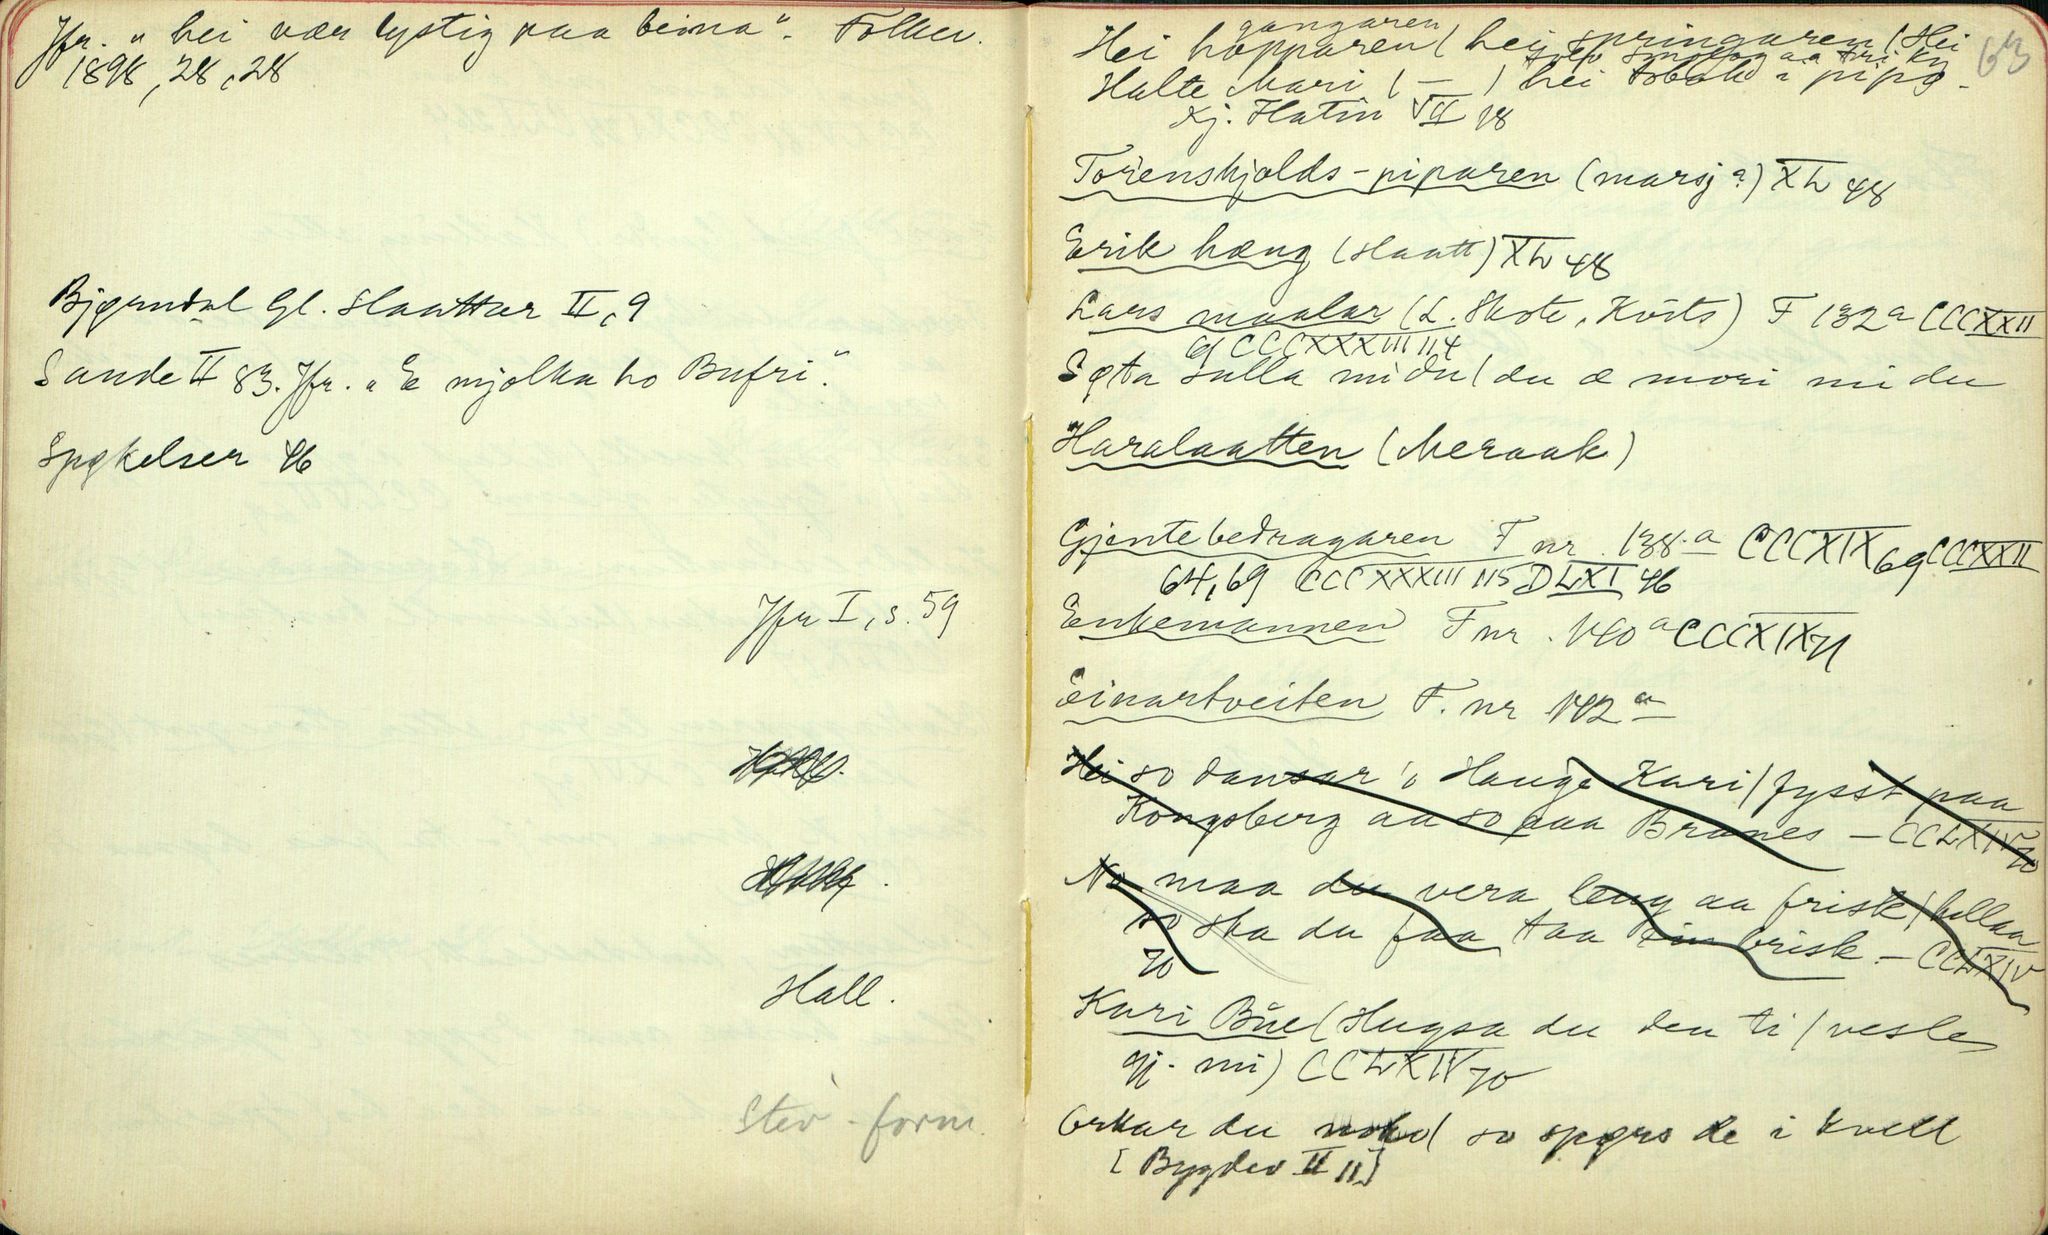 Jfr. "hei vær lystig paa beina". Folkev.
1898, 28, 28
Bjørndal Gl. slaattar II, 9
Sande II 83. Jfr. "E mjølka ho Bufri".
Spøkelser 46
Jfr I, s. 59
Hall.
Stev-form.
63
gangaren
Hei hopparen / hei springaren / Hei
Halte Mari / — / hei tobak i pipo.
Kj. Hatin VII 18
Torenskjolds-piparen (marsj?) XL 48
Erik hæng (slaatt) XL 48
Lars maalar (L. Skote, Kvits) F 132a CCCXXII
CCCXXXIII 114
Søta sulla mi du / du æ mori mi du
Haralaatten (Meraak)
Gjentebedragaren F nr. 138.a CCCXIX 69 CCCXXII
64, 69 CCCXXXIII 115 DLXI 46
Enkemannen F nr. 140a CCCXIX 71
Einartveiten F. nr 142a
Hei so dansar'o Hauge Kari / fysst paa
Kongsberg aa so paa Branes — CCLXIV 70
No maa du vera leng aa frisk / hallaa
so ska du faa taa ein brisk. — CCLXIV
70
Kari Bůe (Hugsa du den ti / vesle
gj. mi) CCLXIV 70
Orkar du / so spørs de i kvell
[Bygdev II 11]